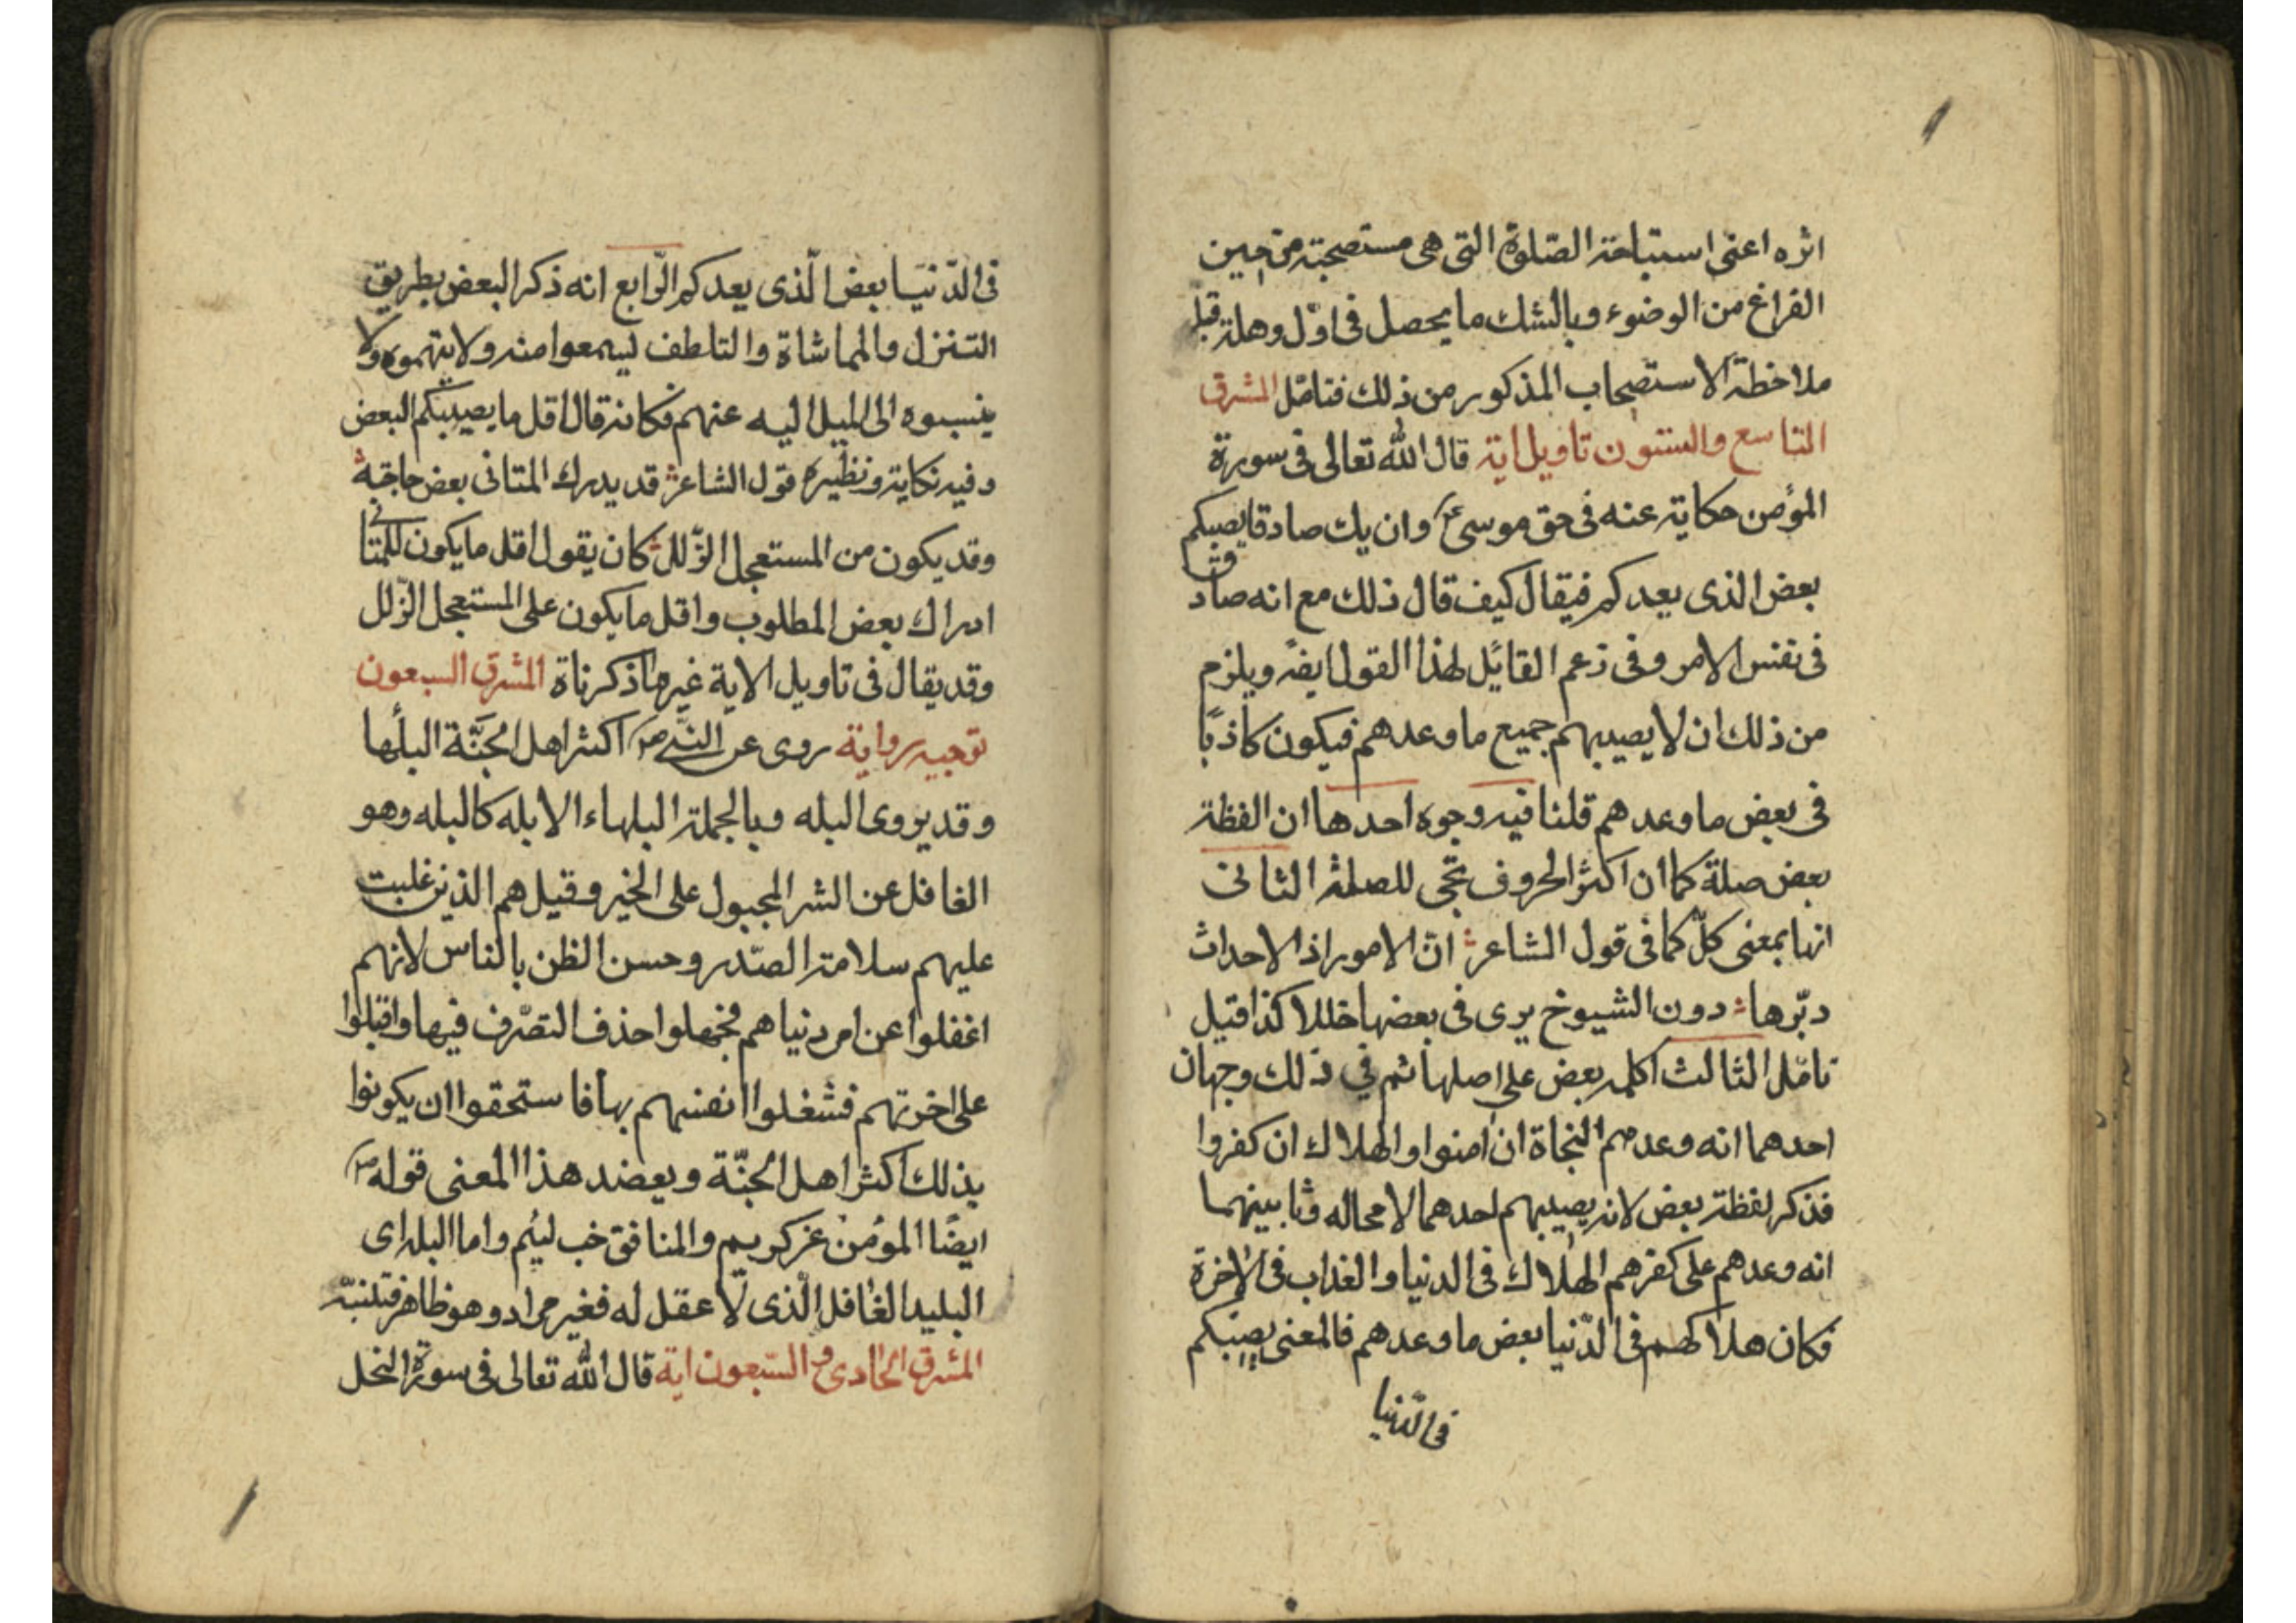 اثره اعنى استباحة الصّلوة التى هى مستصحبة من حين
الفراغ من الوضوء وبالشك ما يحصل فى اوّل وهلة قبل
ملاحظة الاستصحاب المذكور من ذلك فتامّل المشرق
التاسع والستون تاويل اية قال الله تعالى فى سورة
المؤمن حكاية عنه فى حق موسى ع وان يك صادقا يصبكم
بعض الذى يعدكم فيقال كيف قال ذلك مع انه صادق
فى نفس الامر وفى زعم القائل لهذا القول ايضً ويلزم
من ذلك ان لا يصيبهم جميع ما وعدهم فيكون كاذبًا
فى بعض ما وعدهم قلنا فيه وجوه احدها ان الفظة
بعض صلة كما ان اكثر الحروف تجى للصلة الثانى
انها بمعنى كلّ كما فى قول الشاعر انّ الامور اذ الاحداث
دبّرها دون الشيوخ يرى فى بعضها خللا كذا قيل
تامّل الثالث اكلمه بعض على اصلها ثم في ذلك وجهان
احدهما انه وعدهم النجاة ان امنوا والهلاك ان كفروا
فذكر لفظة بعض لانه يصيبهم احدهما لا محاله وثابينهما
انه وعدهم على كفرهم الهلاك فى الدنيا والعذاب فى الاخرة
فكان هلاكهم فى الدّنيا بعض ما وعدهم فالمعنى يصيبكم
فى الدّنيا
فى الدّنيا بعض الّذى يعدكم الرّابع انه ذكر البعض بطريق
التنزل والمماشاة والتلطف ليسمعوا منه ولا يتهموه ولا
ينسبوه الى الميل اليه عنهم فكانه قال اقل ما يصيبكم البعض
وفيه نكاية ونظيره قول الشاعر قد يدرك المتانى بعض حاجته
وقد يكون من المستعجل الزّلل كان يقول اقل ما يكون للمتانى
ادراك بعض المطلوب واقل ما يكون على المستعجل الزّلل
وقد يقال فى تاويل الاية غير ما ذكرناة المشرق السبعون
توجيه رواية روى عن النبى ص اكثر اهل الجَنَّة البلُها
وقد يروى البله وبالجملة البلهاء الابله كالبله وهو
الغافل عن الشر المجبول على الخير وقيل هم الذين غلبت
عليهم سلامة الصّدر وحسن الظن بالناس لانهم
اغفلوا عن امر دنياهم فجهلوا حذف التصّرف فيها واقبلوا
على اخرتهم فشغلوا انفسهم بها فاستحقوا ان يكونوا
بذلك اكثر اهل الجنّة ويعضد هذا المعنى قوله ص
ايضًا المؤمن غر كريم والمنافق خب ليئم واما البله اى
البليد الغافل الّذى لا عقل له فغير مراد وهو ظاهر فتنبّه
المشرق الحادى و السّبعون اية قال الله تعالى فى سورة النحل